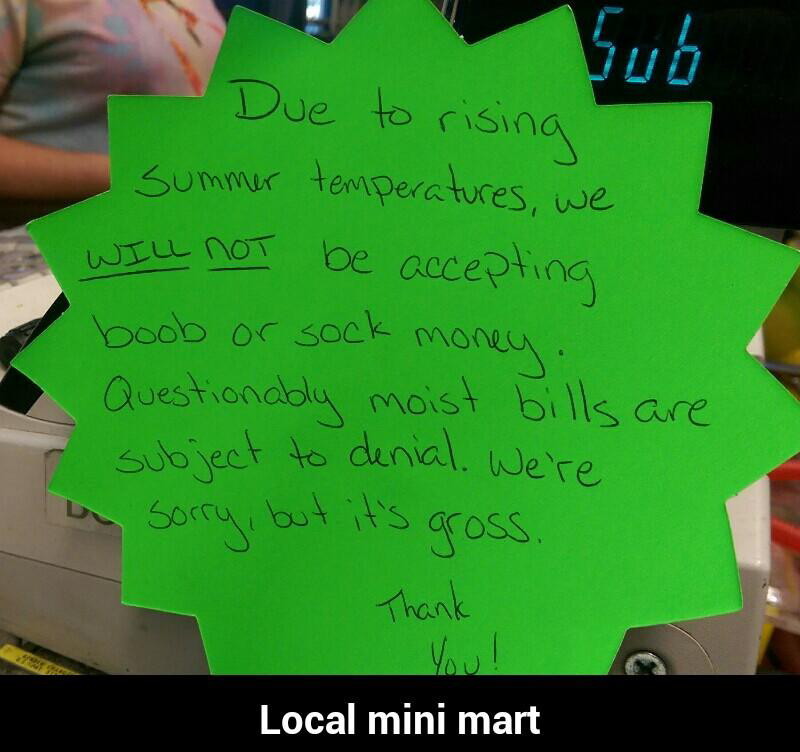 Sub
Due to rising
summer temperatures, we
WILL NOT be accepting
boob or sock money.
Questionably moist bills are
subject to denial. We're
sorry, but it's gross.
Thank
You!
Local mini mart